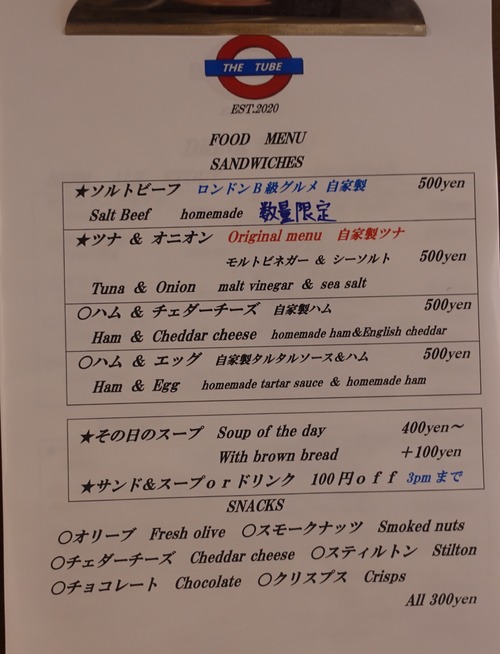 THE TUBE
EST.2020
FOOD MENU
SANDWICHES
★ソルトビーフ ロンドンB級グルメ 自家製 500yen
Salt Beef homemade 数量限定
★ツナ & オニオン Original menu 自家製ツナ
モルトビネガー & シーソルト 500yen
Tuna & Onion malt vinegar & sea salt
〇ハム & チェダーチーズ 自家製ハム 500yen
Ham & Cheddar cheese homemade ham&English cheddar
〇ハム & エッグ 自家製タルタルソース&ハム 500yen
Ham & Egg homemade tartar sauce & homemade ham
★その日のスープ Soup of the day 400yen～
With brown bread +100yen
★サンド&スープor ドリンク 100円off 3pmまで
SNACKS
〇オリーブ Fresh olive 〇スモークナッツ Smoked nuts
〇チェダーチーズ Cheddar cheese 〇スティルトン Stilton
〇チョコレート Chocolate 〇クリスプス Crisps
All 300yen